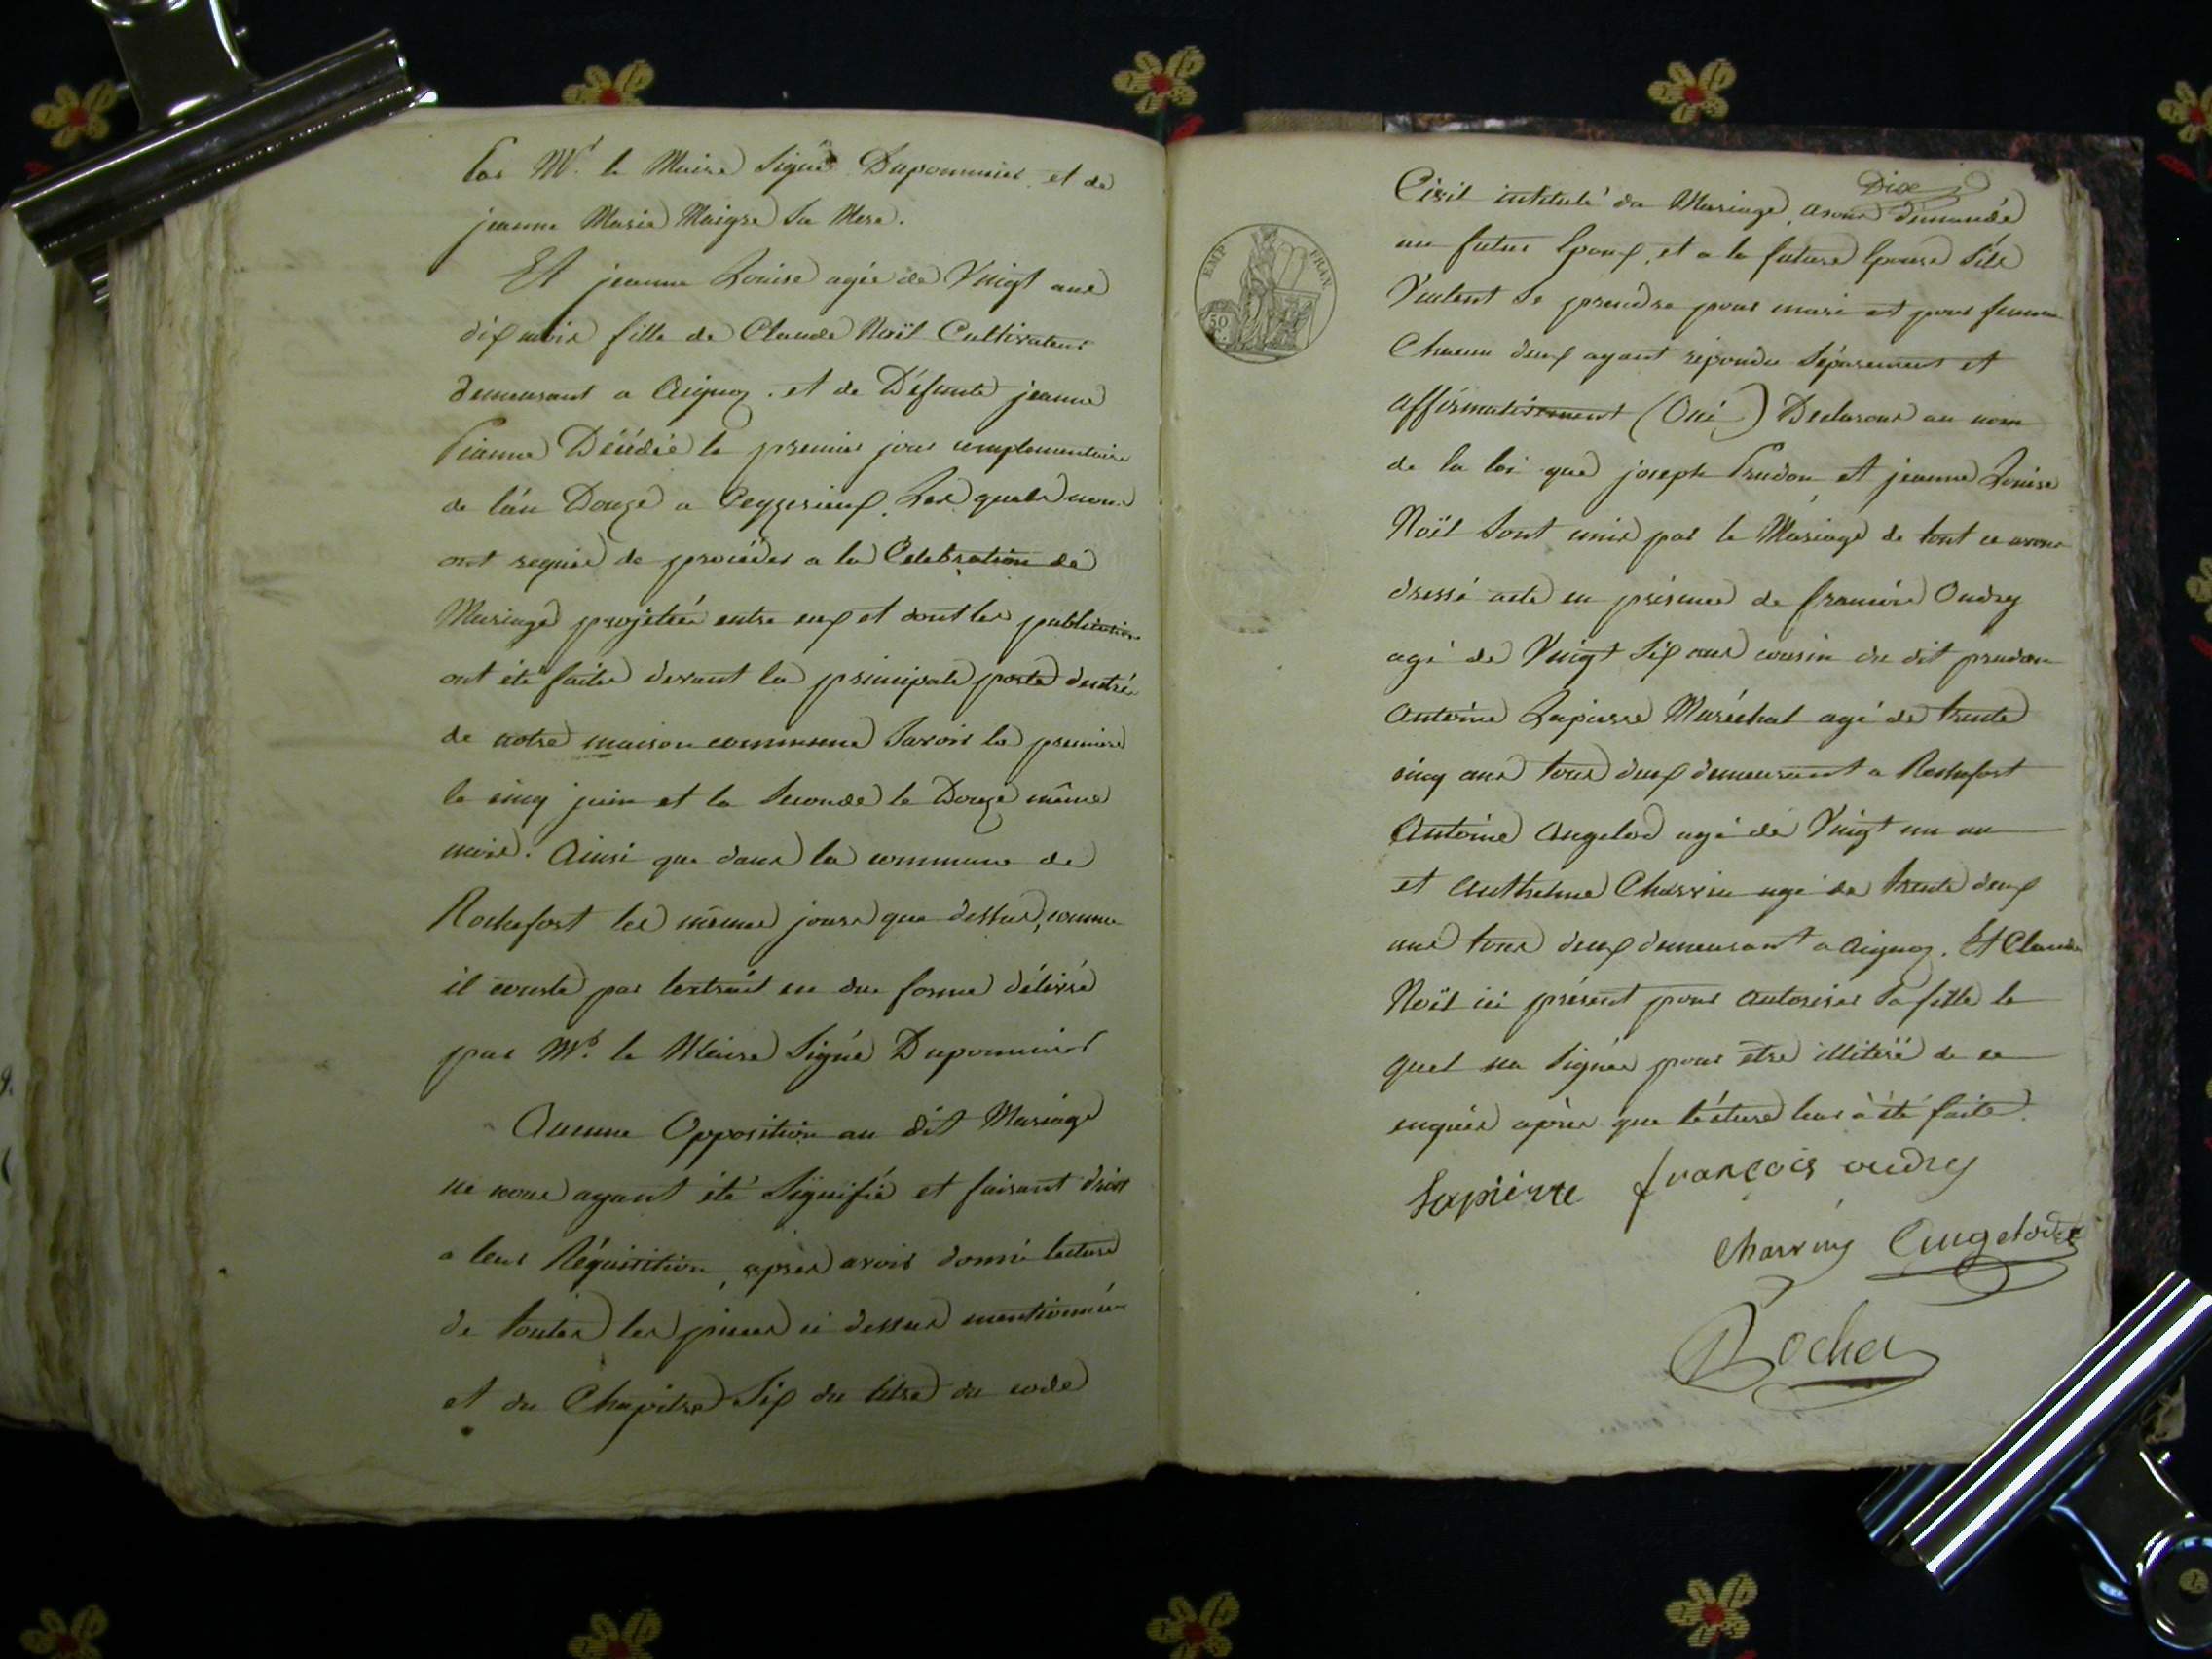 Par Mr. le Maire Signé Duponnier et de
jeanne Marie Maigre Sa Mere.
Et jeanne Louise agée de Vingt ans
dix mois fille de Claude Noël Cultivateur
demeurant a Aignoz. et de Défunte jeanne
Décédée le premier jour complementaire
de l'an Douze a Ceyzerieux. Les quels nous
ont requis de procéder a la Célébration de
Mariage projettée entre eux et dont les publications
ont été faites devant la principale porte dentrée
de notre maison commune Savoir la premiere
le cinq juin et la Seconde le Douze même
mois. Ainsi que dans la commune de
Rochefort les mêmes jours que dessus, comme
il conste par lextrait en due forme délivré
par Mr. le Maire Signé Duponnier
Aucune Opposition au dit Mariage
ne nous ayant été Signifié et faisant droit
a leur Réquisition, après avoir donné lecture
de toutes les pieces ci dessus mentionnées
et du Chapitre Six du titre du code
Dix
Civil intitulé du Mariage, avons demandé
au futur Epoux, et a la future Epouse S'ils
Veulent Se prendre pour mari et pour femme
Chacun deux ayant répondu Séparement et
affirmativement (Oui) Declarons au nom
de la loi que joseph Prudon et jeanne Louise
Noël Sont unis par le Mariage de tout ce avons
dressé acte en présence de francois Oudry
agé de Vingt Six ans cousin du dit prudon
Antoine Lapierre Maréchal agé de trente
cinq ans tous deux demeurant a Rochefort
Antoine Angelod agé de Vingt un an
et Anthelme Charvin agé de trente deux
ans tous deux demeurant a Aignoz. Et Claude
Noël ici présent pour Autoriser Sa fille le
quel na Signée pour être illitéré de ce
enquis après que lécture leur à été faite.
Lapierre françois oudry
Charvin Angelod
Rochet
EMP. FRAN.
50 C.